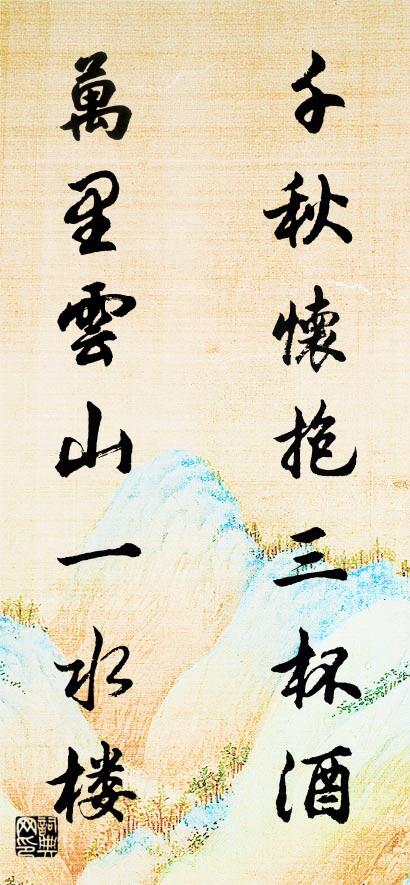 千秋懷抱三杯酒
萬里雲山一水楼